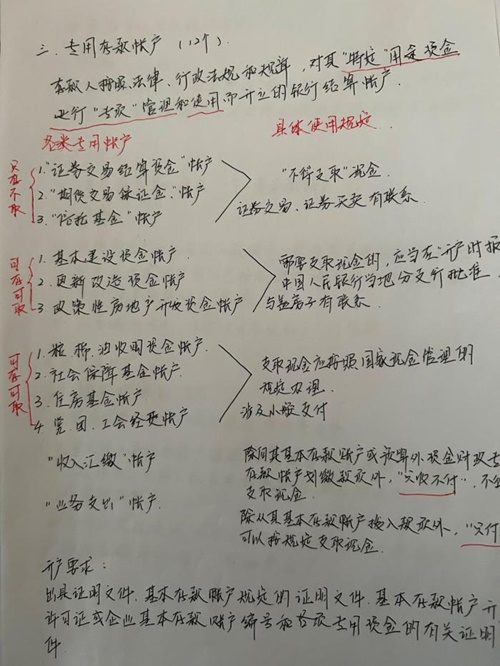 三. 专用存款帐户 (12个).
存款人按照法律、行政法规和规章, 对其"特定"用途资金
进行"专项"管理和使用而开立的银行结算帐户.
各类专用帐户
具体使用规定.
只存不取
1. "证券交易结算资金"帐户
2. "期货交易保证金"帐户
3. "信托基金"帐户
"不得支取"现金.
证券交易、证券买卖有联系
可存可取
1. 基本建设资金帐户
2. 更新改造资金帐户
3 政策性房地产开发资金帐户
需要支取现金的, 应当在"开户时报
中国人民银行当地分支行批准.
与盖房子有联系
可存可取
1. 粮、棉、油收购资金帐户.
2. 社会保障基金帐户.
3. 住房基金帐户
4 党、团、工会经费帐户
支取现金应按照国家现金管理的
规定办理.
涉及小额支付
"收入汇缴"帐户
除向其基本存款账户或预算外资金财政专
存款帐户划缴款外, "只收不付". 不
支取现金.
"业务支出"帐户.
除从其基本存款帐户拨入款项外, "只付
可以按规定支取现金.
开户要求:
出具证明文件. 基本存款帐户规定的证明文件. 基本存款帐户开
许可证或企业基本存款账户编号和各项专用资金的有关证明
件